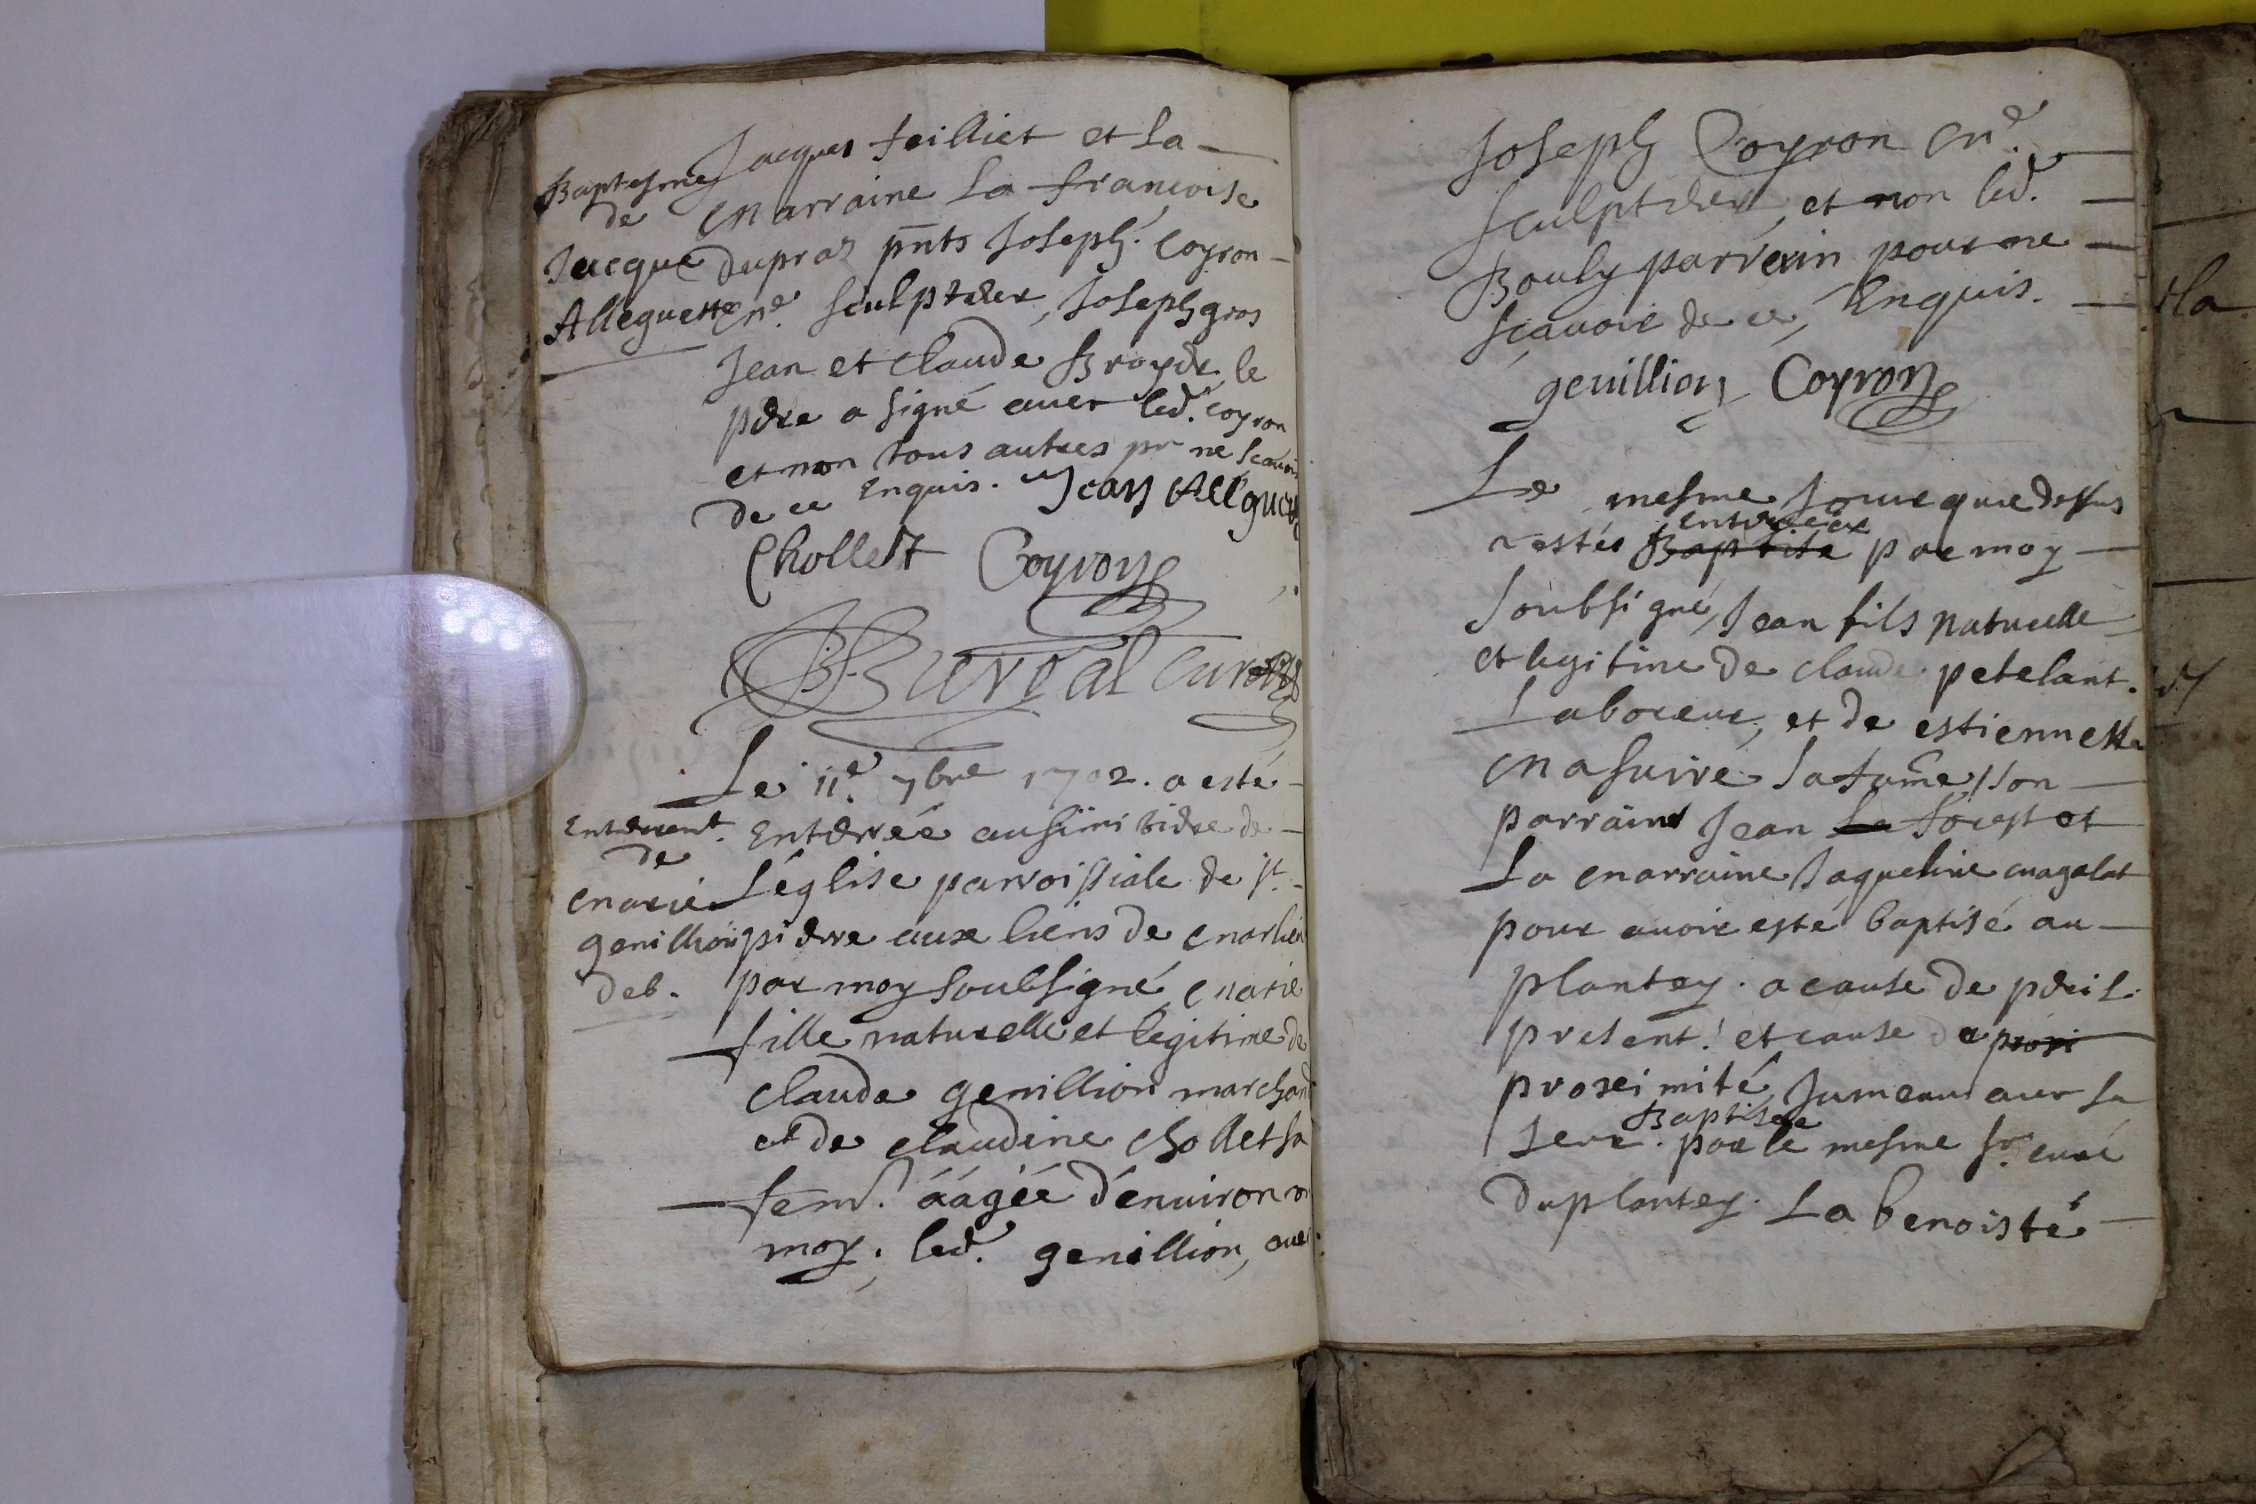 Jacques feilliet et la
Marraine la francoise
dupraz pnts Joseph Coyron
Me sculpteur, Joseph gros
Jean et Claude Broyde le
pere a signé avec led. Coyron
et non tous autres pr ne scavoir
de ce Enquis. Jean Alleguette
Chollet Coyron
curé
Baptesme
de
Jacque
Alleguette
Le 11e 7bre 1702. a esté
Enterrée au simitiere de
L'église parroissiale de st
pierre aux liens de Marlieu
par moy soubsigné, Marie
fille naturelle et legitime de
Claude genillion marchand
et de Claudine Chollet sa
fem. áagée d'enuiron un
moy. led. genillion, avec
Enterrement
de
Marie
genillion
deb.
Joseph Coyron Me
sculpteur, et non led.
Bouly parrein pour ne
scauoir de ce, Enquis.
genillion Coyron
Le mesme Jour que dessus
a estés Baptisé enterrée par moy
soubsigné, Jean fils naturelle
et legitime de Claude petelant.
Laboreur, et de estiennette
Masuire sa fame, son
parraint Jean La forest et
La Marraine Jaqueline Magalat
pour auoir esté baptisé au
plantey. a cause de peril
present! et cause de proxi
proximité, Jumeau auec sa
seur. Baptisée par le mesme sr. curé
du plantey. La benoiste